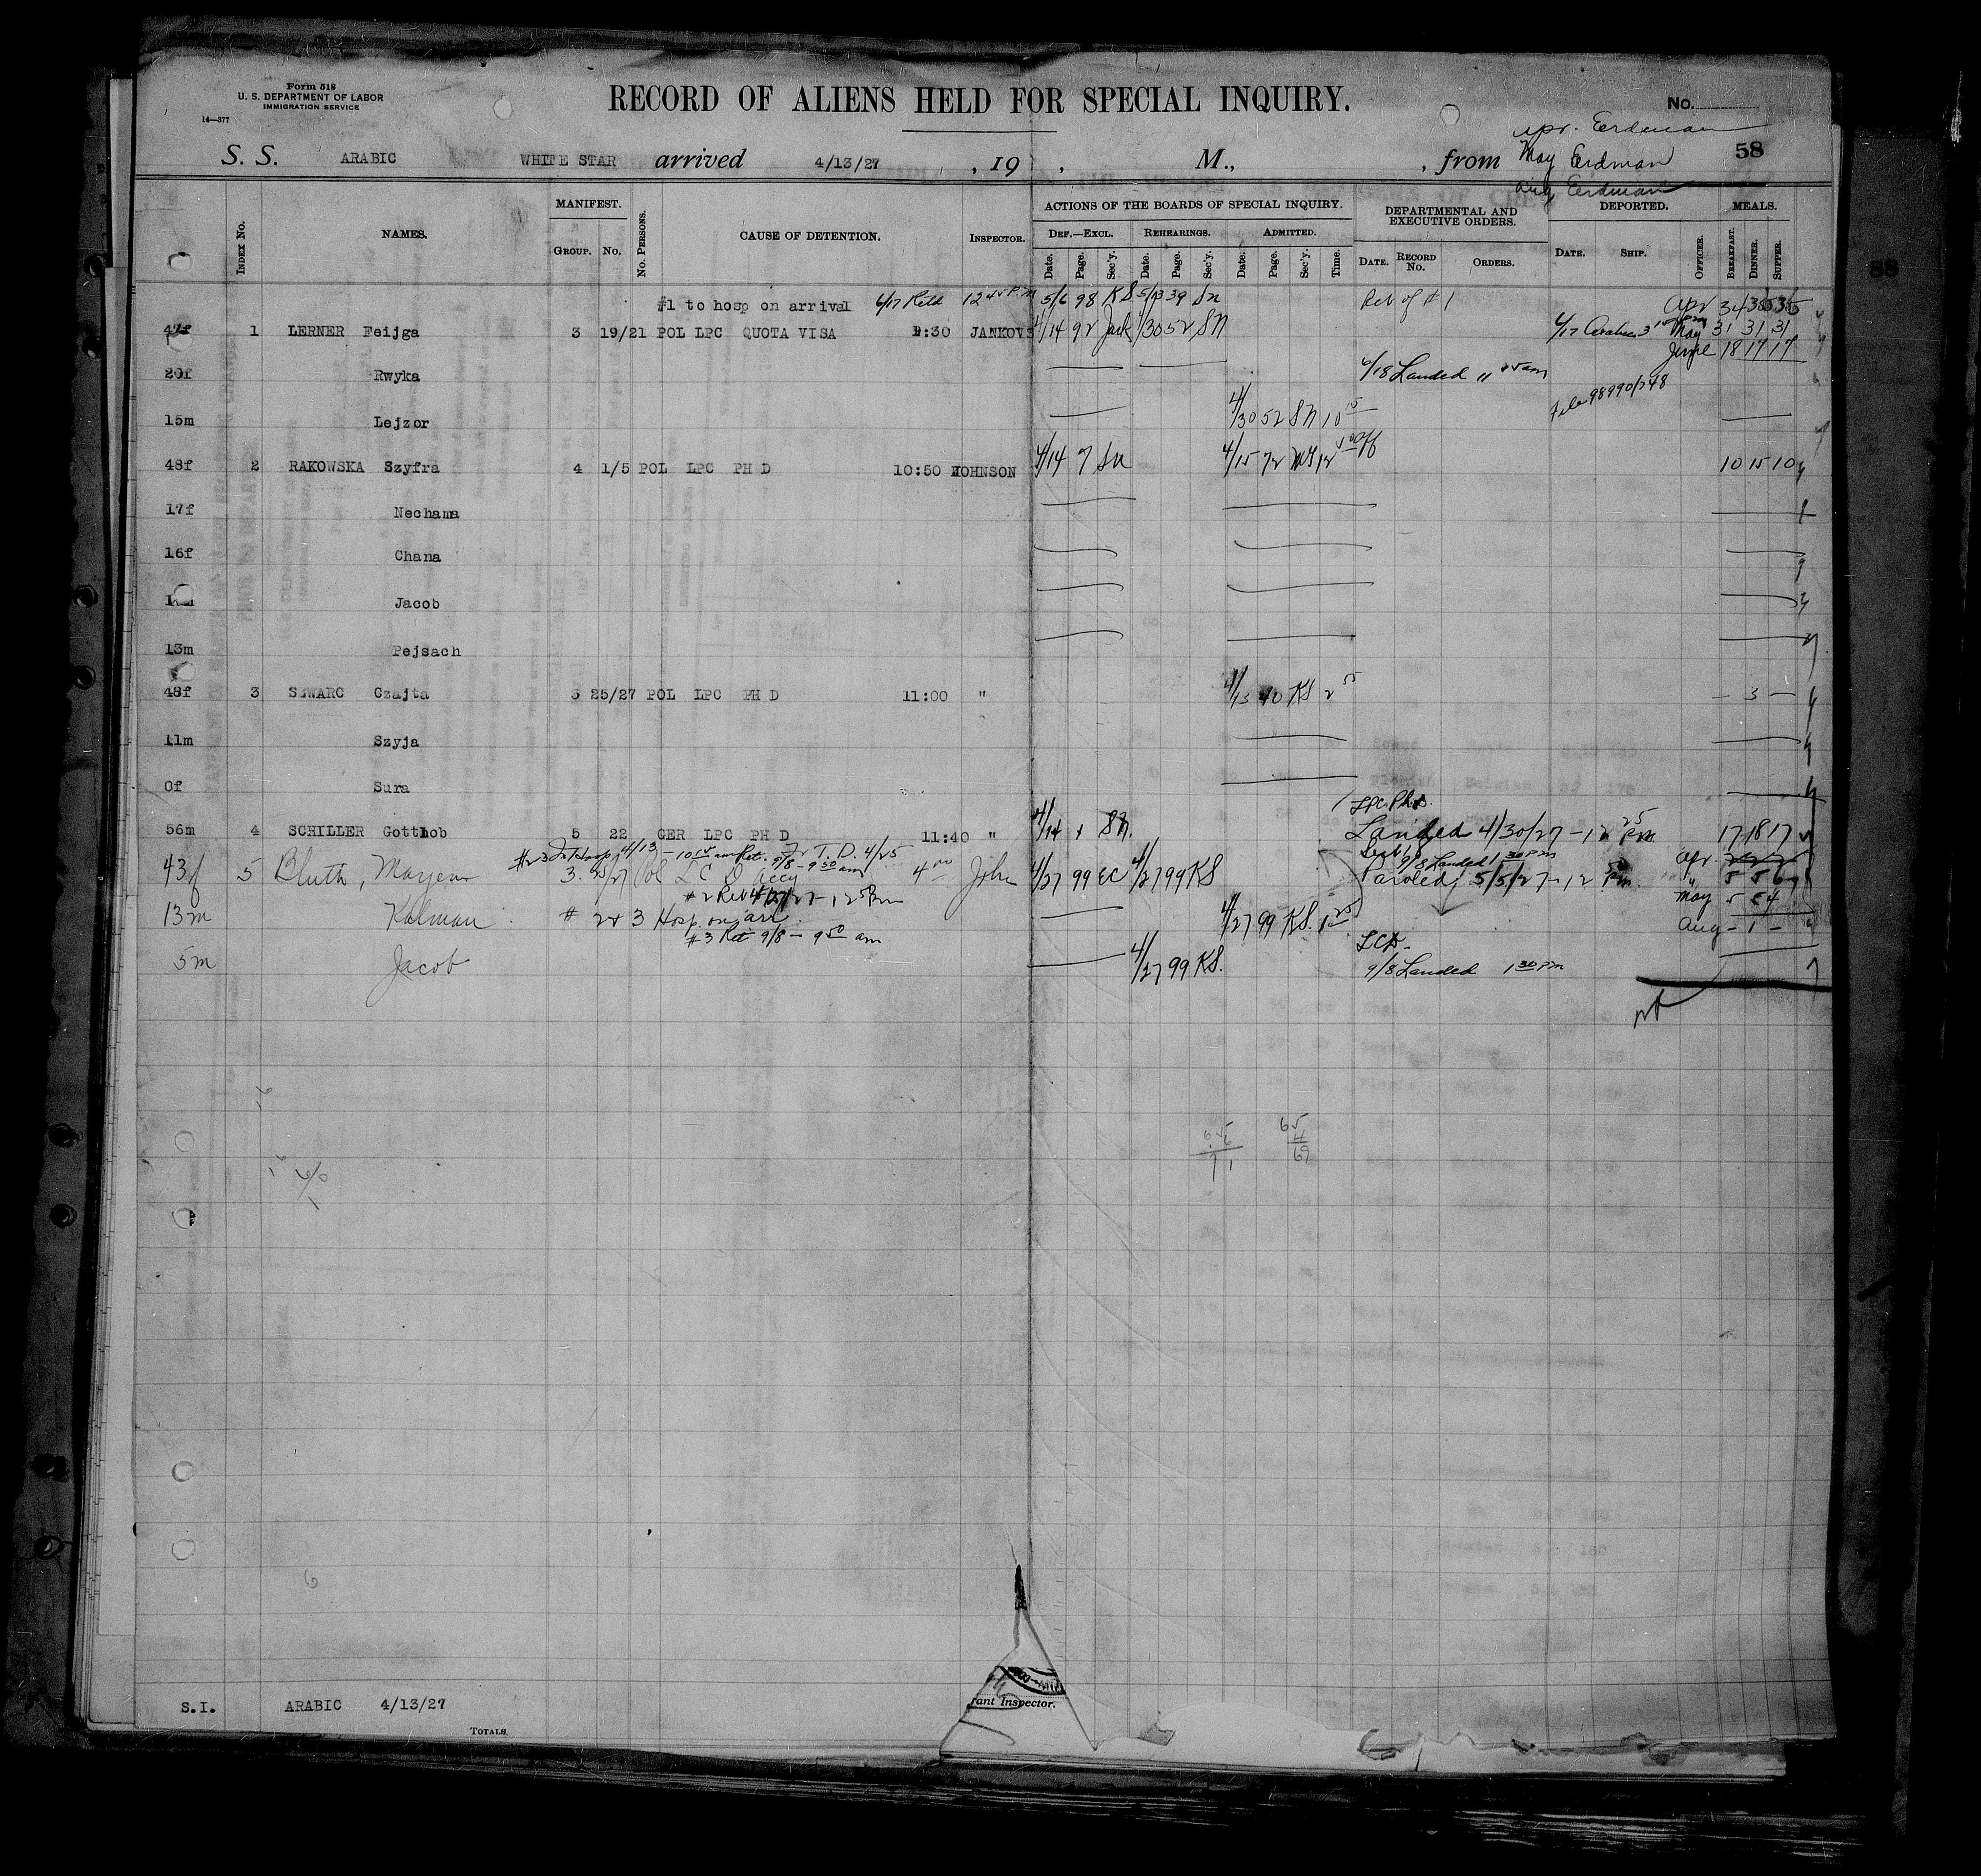 Form 518
U. S. DEPARTMENT OF LABOR
IMMIGRATION SERVICE
14—377
RECORD OF ALIENS HELD FOR SPECIAL INQUIRY.
No.
Apr. Erdman
S. S. ARABIC WHITE STAR arrived 4/13/27 , 19 , M., , from May Erdman 58
Aug Erdman
INDEX No. NAMES. MANIFEST. GROUP. No. No. PERSONS. CAUSE OF DETENTION. INSPECTOR. ACTIONS OF THE BOARDS OF SPECIAL INQUIRY. DEF.—EXCL. REHEARINGS. ADMITTED. DEPARTMENTAL AND EXECUTIVE ORDERS. DEPORTED. MEALS.
Date. Page. Sec'y. Date. Page. Sec'y. Date. Page. Sec'y. Time. DATE. RECORD No. ORDERS. DATE. SHIP. OFFICER. BREAKFAST. DINNER. SUPPER.
#1 to hosp on arrival 6/17 Retd 12 45 P.m 5/6 98 KS 5/13 39 Sn Ret of #1 Apr 34
47f 1 LERNER Feijga 3 19/21 POL LPC QUOTA VISA 9:30 JANKOVS 4/14 92 Jack 4/30 52 SN 6/17 May 31 31 31
June 18 17 17
20f Rwyka 6/18 Landed 11 am
File 98990/748
15m Lejzor 4/30 52 SN 10 15
48f 2 RAKOWSKA Szyfra 4 1/5 POL LPC PH D 10:50 JOHNSON 4/14 7 Sn 4/15 72 12 10 15 10
17f Nechama
16f Chana
Jacob
13m Pejsach
48f 3 SZWARC Czajta 5 25/27 POL LPC PH D 11:00 " 4/13 40 KS 2 55 – 3 –
11m Szyja
0f Sura
LPC Ph.D.
56m 4 SCHILLER Gottlob 5 22 GER LPC PH D 11:40 " 4/14 SN. Landed 4/30/27 – 12 25 Pm 17 18 17
#2&3 In Hosp 4/13 – 10 15 am Ret. 9/8 – 9 50 am T. D. 4/25
9/8 Landed 1 30 PM Apr.
43f 5 Bluth, Mayem 3. 25/27 Pol L C D accy 4 00 John 4/27 99 EC 4/27 99 KS Paroled 5/5/27 – 12 Pm
#2 Ret 4/27/27 – 1 25 Pm May
13m Kalman # 2 & 3 Hosp. on arr. 4/27 99 KS. 1 25 Aug – 1 –
#3 Ret 9/8 – 9 50 am LCD –
5m Jacob 4/27 99 KS. 9/8 Landed 1 30 PM
65
65 4
71 69
rant Inspector.
S.I. ARABIC 4/13/27
TOTALS.